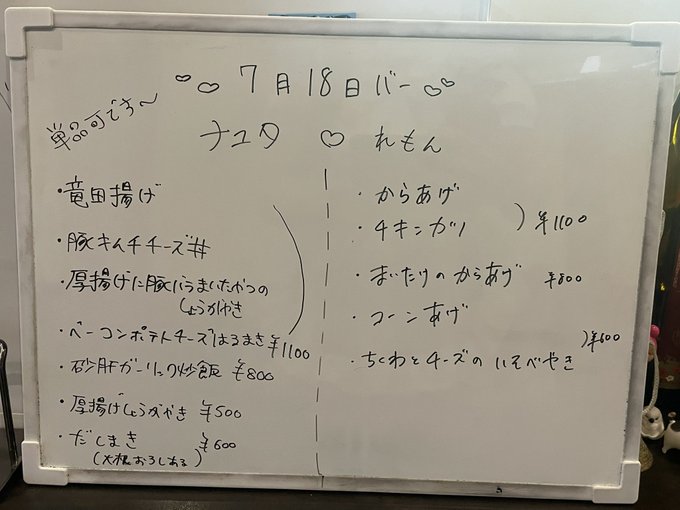 7月18日バー
単品可です〜
ナユタ ♡ れもん
・竜田揚げ
・豚キムチチーズ丼
・厚揚げに豚バラまいたやつの
しょうがやき
・ベーコンポテトチーズはるまき ¥1100
・砂肝ガーリック炒飯 ¥800
・厚揚げしょうがやき ¥500
・だしまき ¥600
(大根おろしある)
・からあげ
・チキンカツ ¥1100
・まいたけのからあげ ¥800
・コーンあげ
・ちくわとチーズのいそべやき ¥600